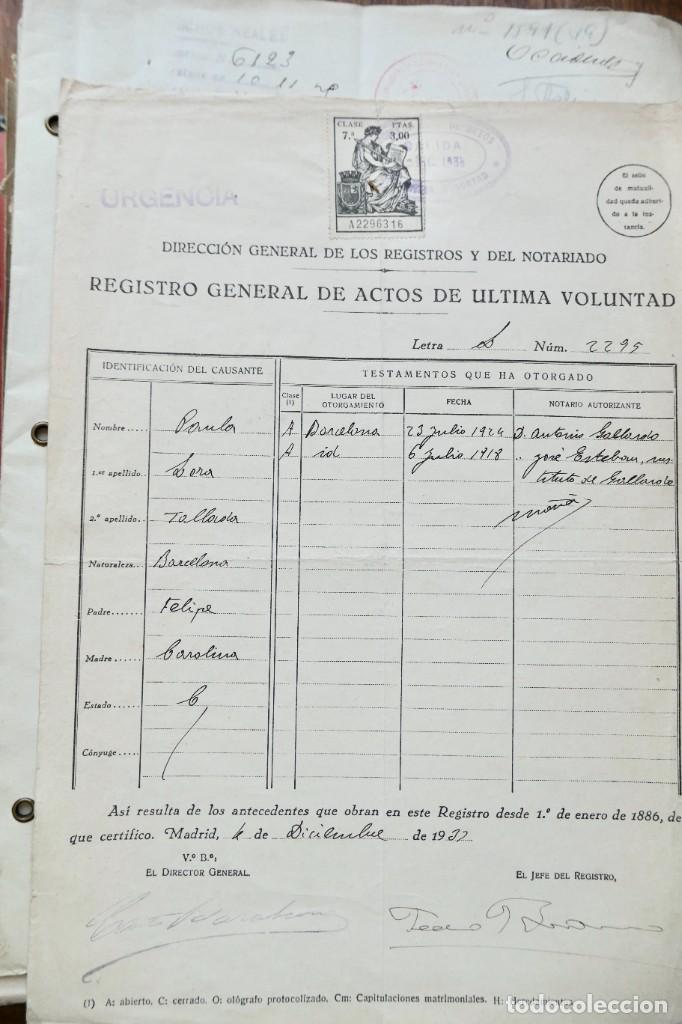 6123
URGENCIA
CLASE PTAS.
7.ª 3,00
A2296316
SALIDA
El sello
de mutuali-
dad queda adheri-
do a la ins-
tancia.
DIRECCIÓN GENERAL DE LOS REGISTROS Y DEL NOTARIADO
REGISTRO GENERAL DE ACTOS DE ULTIMA VOLUNTAD
Letra Núm. 2295
IDENTIFICACIÓN DEL CAUSANTE
TESTAMENTOS QUE HA OTORGADO
Clase (1) LUGAR DEL OTORGAMIENTO FECHA NOTARIO AUTORIZANTE
Nombre Paula
A Barcelona 23 Julio 1924 D. Antonio Gallardo
A id 6 Julio 1918 " José Esteban, sus-
tituto de Gallardo
1.er apellido Sera
2.º apellido Tallada
Naturaleza Barcelona
Padre Felipe
Madre Carolina
Estado C
Cónyuge
Así resulta de los antecedentes que obran en este Registro desde 1.º de enero de 1886, de
que certifico. Madrid, de Diciembre de 193
V.º B.º:
EL DIRECTOR GENERAL.
EL JEFE DEL REGISTRO,
(1) A: abierto. C: cerrado. O: ológrafo protocolizado. Cm: Capitulaciones matrimoniales. H:
todocoleccion